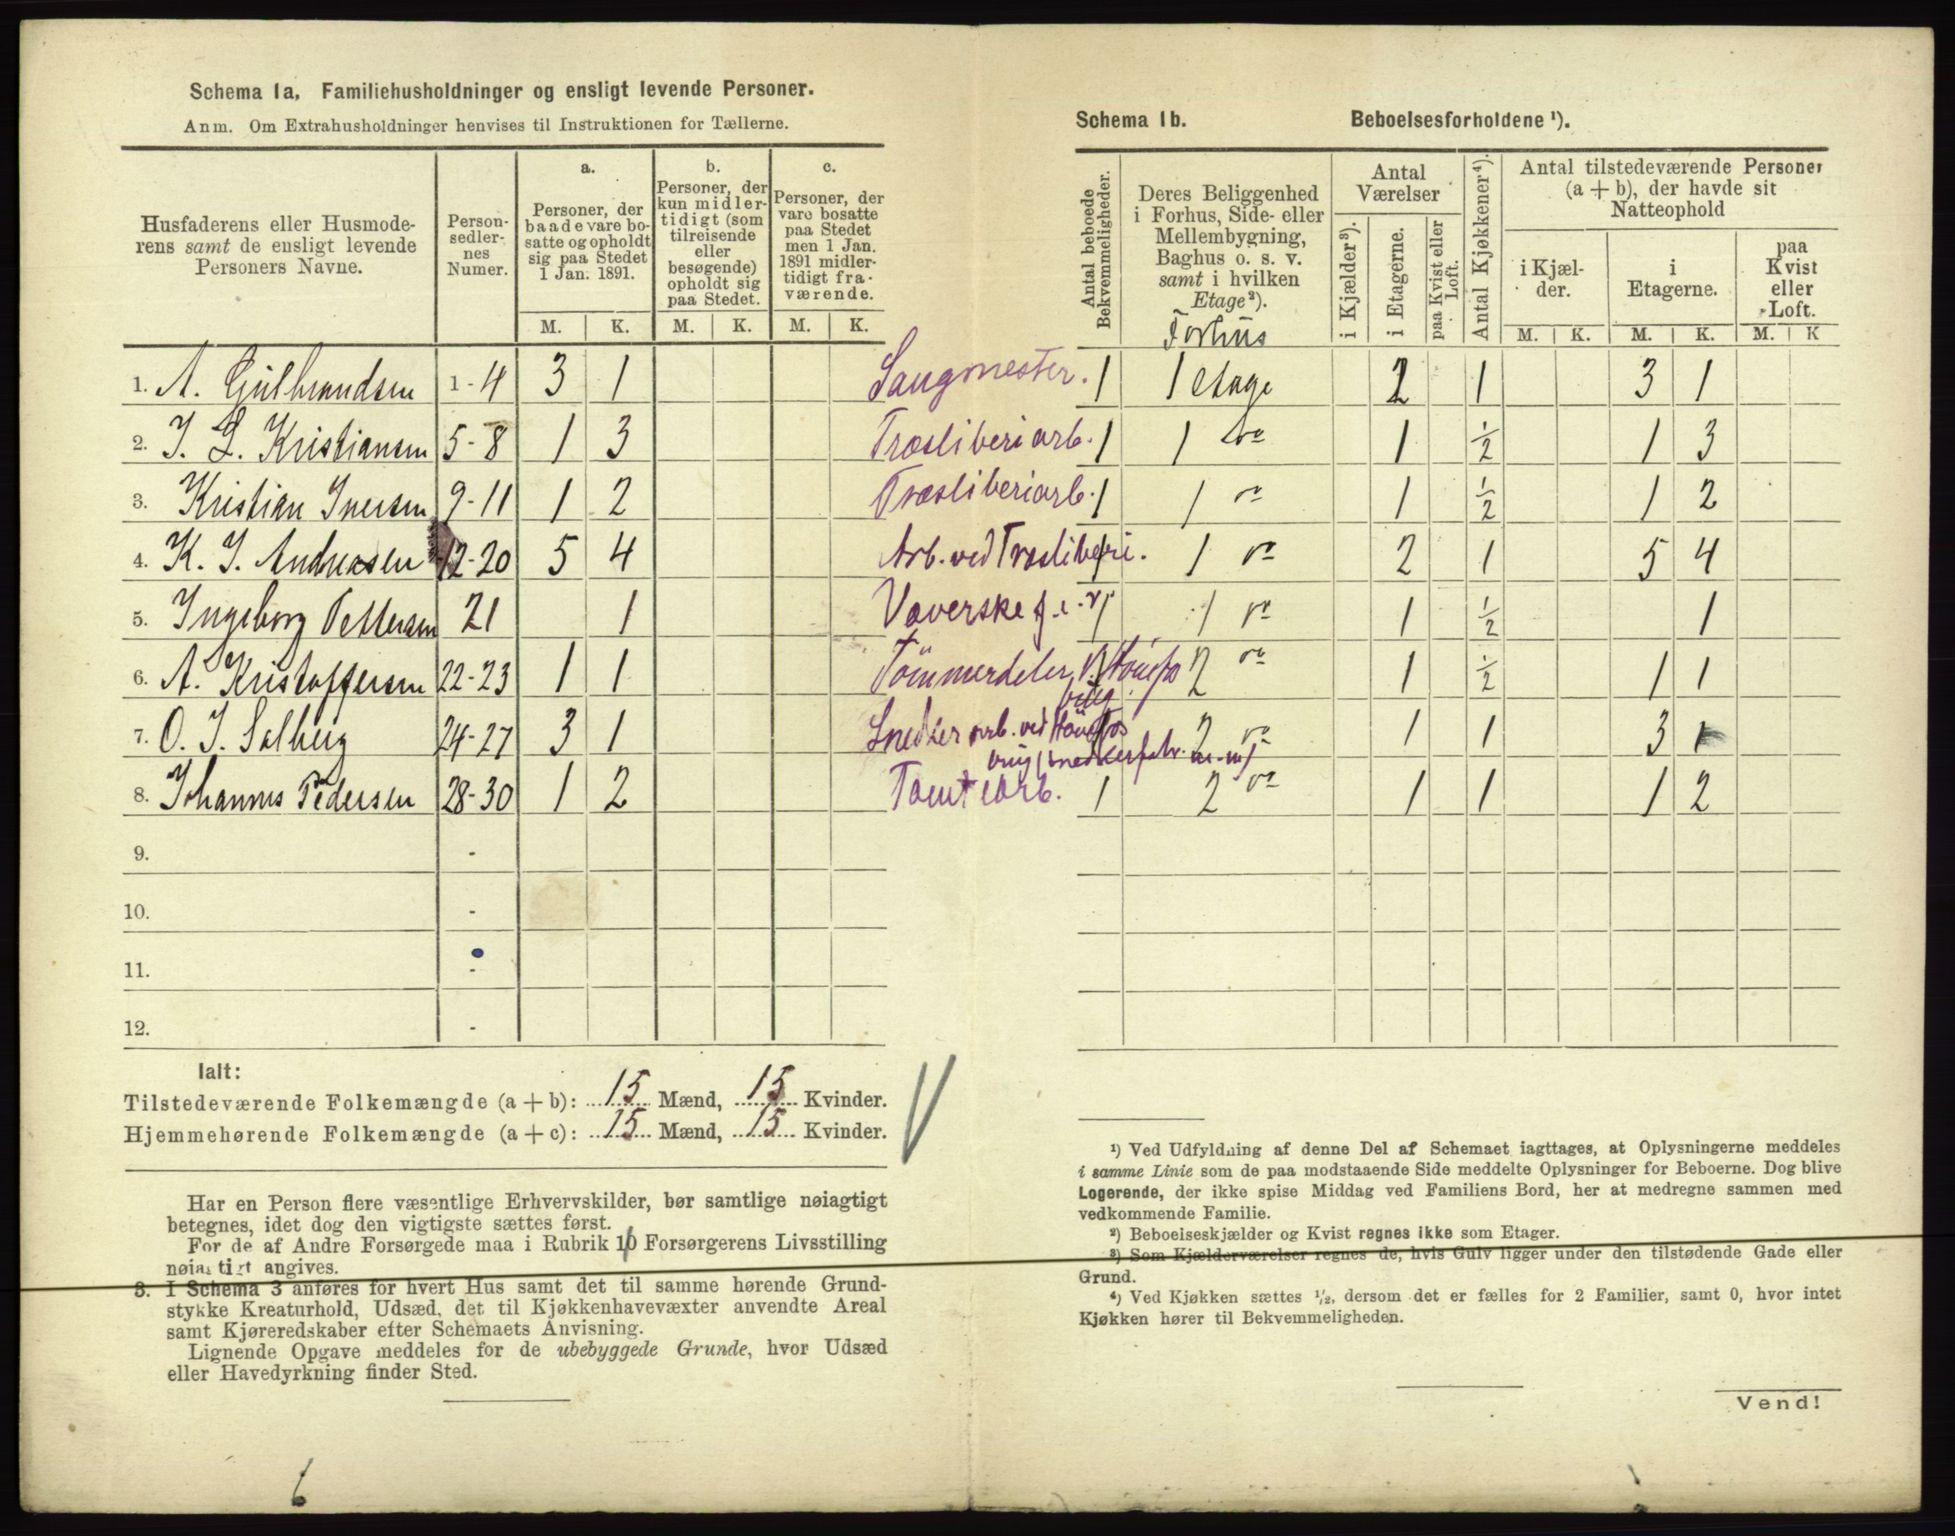 Schema 1a, Familiehusholdninger og ensligt levende Personer.
Anm. Om Extrahusholdninger henvises til Instruktionen for Tællerne.
Husfaderens eller Husmoderens samt de ensligt levende Personers Navne.
Personsedlernes Numer.
a.
Personer, der baade vare bosatte og opholdt sig paa Stedet 1 Jan. 1891.
b.
Personer, der kun midlertidigt (som tilreisende eller besøgende) opholdt sig paa Stedet.
c.
Personer, der vare bosatte paa Stedet men 1 Jan. 1891 midlertidigt fraværende.
M. K. M. K. M. K.
1. A. Gulbrandsen 1-4 3 1 Saugmester.
2. J. L. Kristiansen 5-8 1 3 Træsliberiarb.
3. Kristian Iversen 9-11 1 2 Træsliberiarb.
4. K. J. Andreasen 12-20 5 4 Arb. ved Træsliberi.
5. Ingeborg Pettersen 21 1 Væverske
6. A. Kristoffersen 22-23 1 1 Tömmerdeler
7. O. J. Solberg 24-27 3 1 Snedker arb. ved
8. Johannes Pedersen 28-30 1 2 Tomtearb.
9. -
10. -
11. -
12. -
Ialt:
Tilstedeværende Folkemængde (a + b): 15 Mænd, 15 Kvinder.
Hjemmehørende Folkemængde (a + c): 15 Mænd, 15 Kvinder.
Har en Person flere væsentlige Erhvervskilder, bør samtlige nøiagtigt
betegnes, idet dog den vigtigste sættes først.
For de af Andre Forsørgede maa i Rubrik 10 Forsørgerens Livsstilling
nøiagtigt angives.
3. I Schema 3 anføres for hvert Hus samt det til samme hørende Grund-
stykke Kreaturhold, Udsæd, det til Kjøkkenhavevæxter anvendte Areal
samt Kjøreredskaber efter Schemaets Anvisning.
Lignende Opgave meddeles for de ubebyggede Grunde, hvor Udsæd
eller Havedyrkning finder Sted.
6
Schema 1b. Beboelsesforholdene ¹).
Antal beboede Bekvemmeligheder.
Deres Beliggenhed i Forhus, Side- eller Mellembygning, Baghus o. s. v. samt i hvilken Etage²).
Forhus
Antal Værelser
i Kjælder³).
i Etagerne.
paa Kvist eller Loft.
Antal Kjøkkener⁴).
Antal tilstedeværende Personer (a + b), der havde sit Natteophold
i Kjælder.
i Etagerne.
paa Kvist eller Loft.
M. K. M. K. M. K
1 1 etage 2 1 3 1
1 1 do 1 ½ 1 3
1 1 do 1 ½ 1 2
1 1 do 2 1 5 4
1 1 do 1 ½ 1
1 2 do 1 ½ 1 1
1 2 do 1 1 3 1
1 2 do 1 1 1 2
¹) Ved Udfyldning af denne Del af Schemaet iagttages, at Oplysningerne meddeles
i samme Linie som de paa modstaaende Side meddelte Oplysninger for Beboerne. Dog blive
Logerende, der ikke spise Middag ved Familiens Bord, her at medregne sammen med
vedkommende Familie.
²) Beboelseskjælder og Kvist regnes ikke som Etager.
³) Som Kjælderværelser regnes de, hvis Gulv ligger under den tilstødende Gade eller
Grund.
⁴) Ved Kjøkken sættes ½, dersom det er fælles for 2 Familier, samt 0, hvor intet
Kjøkken hører til Bekvemmeligheden.
Vend!